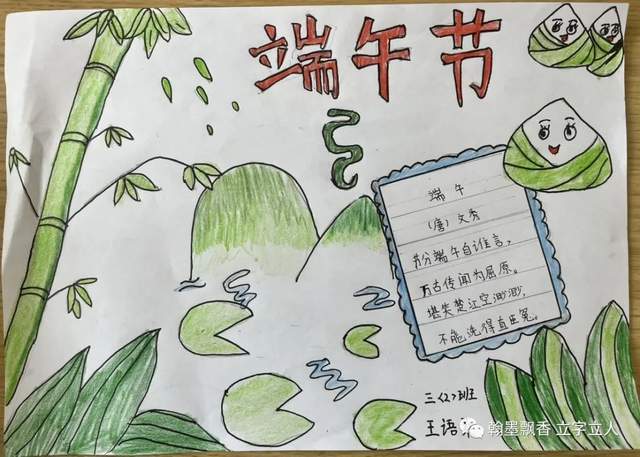 端午节
端午
(唐)文秀
节分端午自谁言,
万古传闻为屈原。
堪笑楚江空渺渺,
不能洗得直臣冤。
三〈2〉班
王语
翰墨飘香 立字立人